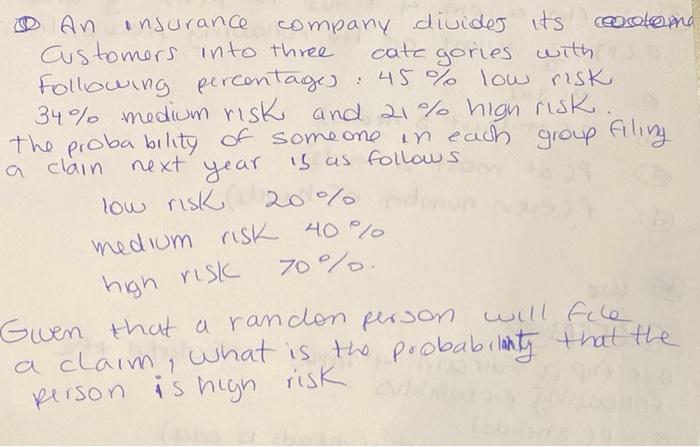 ① An insurance company divides its
Customers into three categories with
following percentages : 45 % low risk
34% medium risk and 21 % high risk.
the probability of someone in each group filing
a clain next year is as follows
low risk 20 %
medium risk 40 %
high risk 70 %.
Given that a random person will file
a claim, what is the probability that the
person is high risk